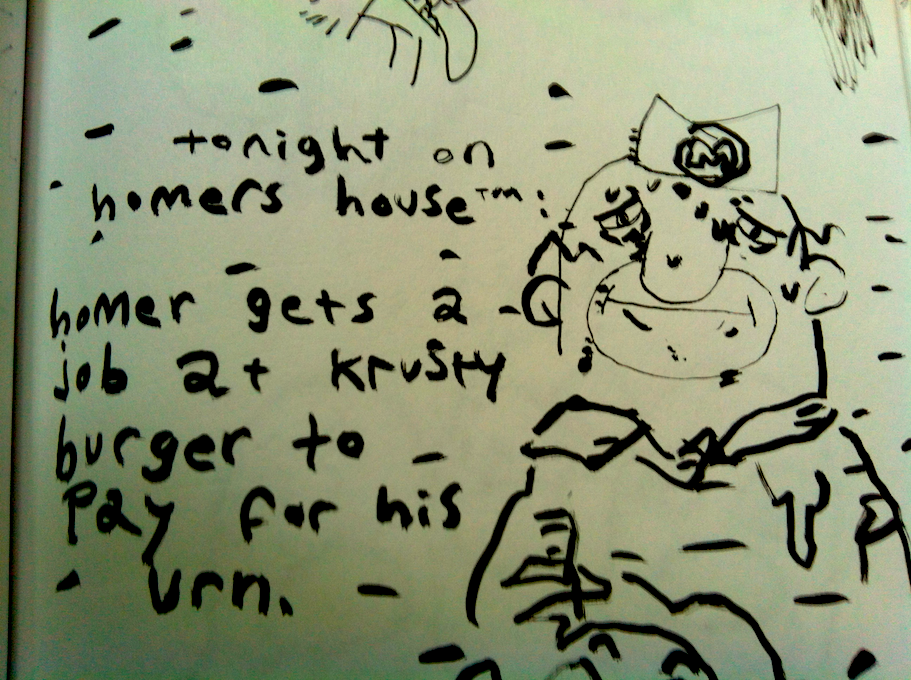 tonight on
homers house™:
homer gets a
job at krusty
burger to
pay for his
urn.